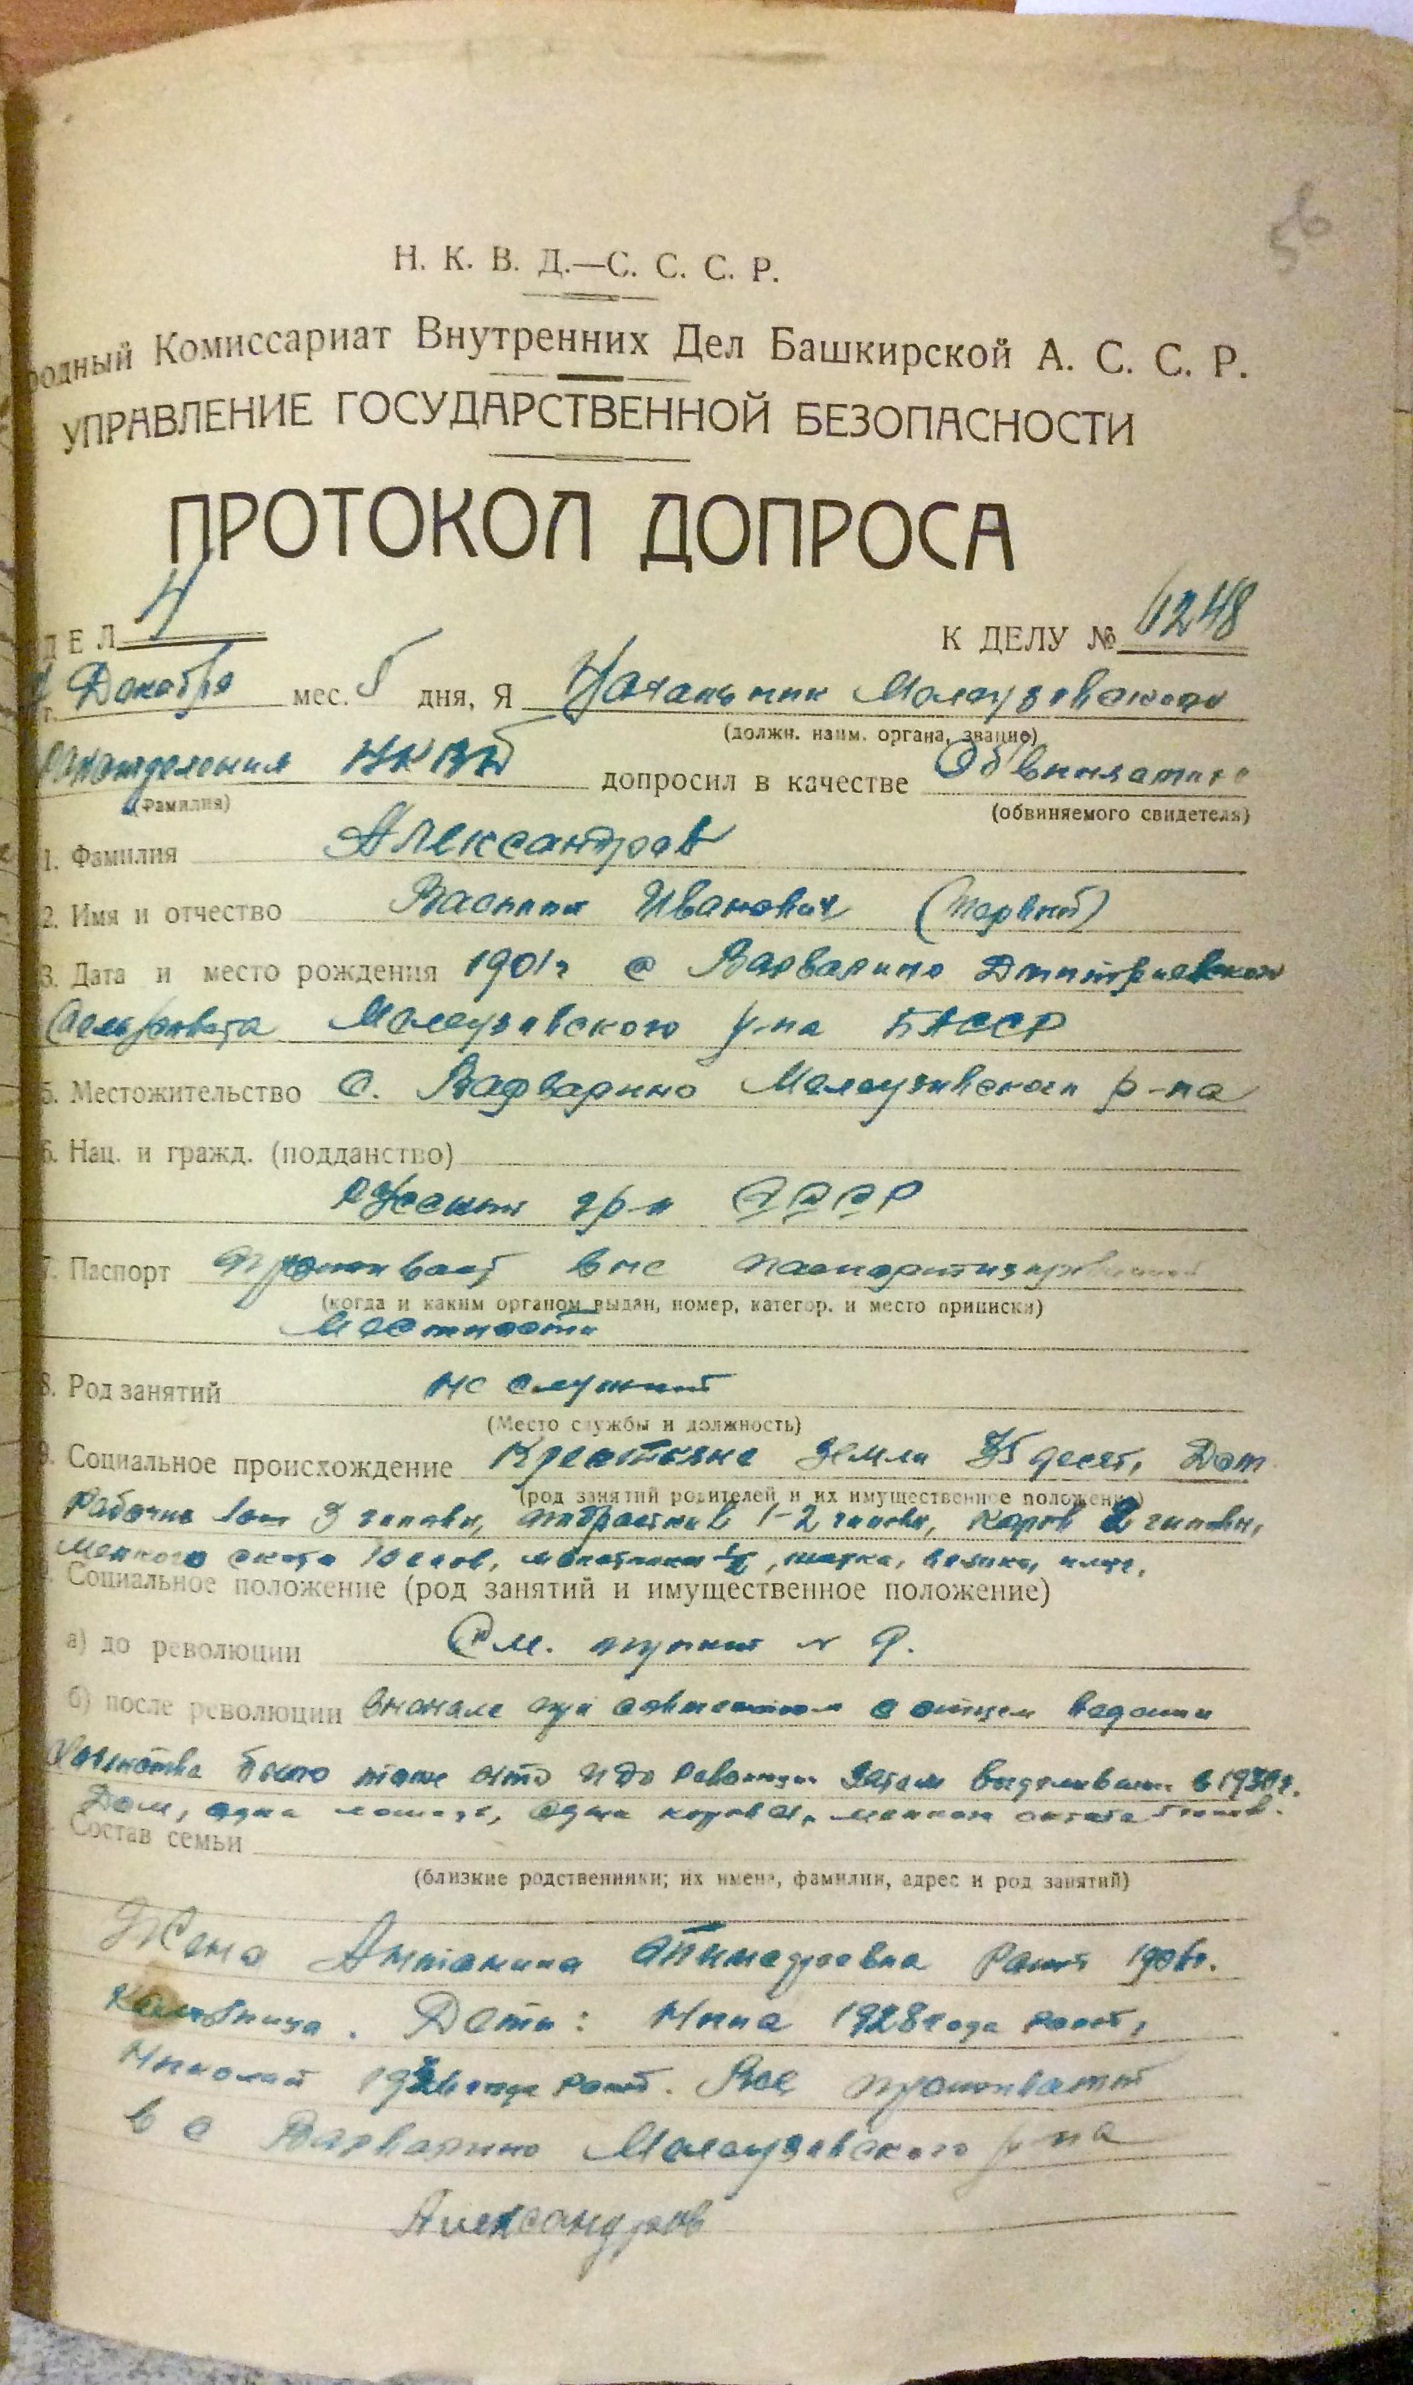 56
Н. К. В. Д.—С. С. С. Р.
родный Комиссариат Внутренних Дел Башкирской А. С. С. Р.
УПРАВЛЕНИЕ ГОСУДАРСТВЕННОЙ БЕЗОПАСНОСТИ
ПРОТОКОЛ ДОПРОСА
ДЕЛ 4 К ДЕЛУ № 6248
г. Декабря мес. 5 дня, Я Начальник Мелеузовского
(должн. наим. органа, звание)
Райотделения НКВД допросил в качестве Обвиняемого
(фамилия) (обвиняемого свидетеля)
1. Фамилия Александров
2. Имя и отчество Василий Иванович (Первый)
3. Дата и место рождения 1901г с Варварино Дмитриевского
Сельсовета Мелеузовского р-на БАССР
5. Местожительство с. Варварино Мелеузовского р-на
6. Нац. и гражд. (подданство)
Русский гр-н СССР
7. Паспорт Проживает вне паспортизированной
(когда и каким органом выдан, номер, категор. и место приписки)
местности
8. Род занятий не служит
(Место службы и должность)
9. Социальное происхождение Крестьяне Земли десят, Дом
(род занятий родителей и их имущественное положение)
Рабочих лош 3 головы, 1-2 головы, коров 2 головы,
мелкого скота 10 голов, молотилки ½,
Социальное положение (род занятий и имущественное положение)
а) до революции См. пункт № 9.
б) после революции Вначале при совместном с отцем ведении
хозяйства было тоже что и до революции Затем в 1930г.
Дом, одна лошадь, одна корова, мелкого скота голов.
Состав семьи
(близкие родственники; их имена, фамилии, адрес и род занятий)
Жена Антонина Тимофеевна рожд 1906г.
Колхозница. Дети: Нина 1928 года рожд,
Николай года рожд. Все проживают
в с Варварино Мелеузовского р-на
Александров